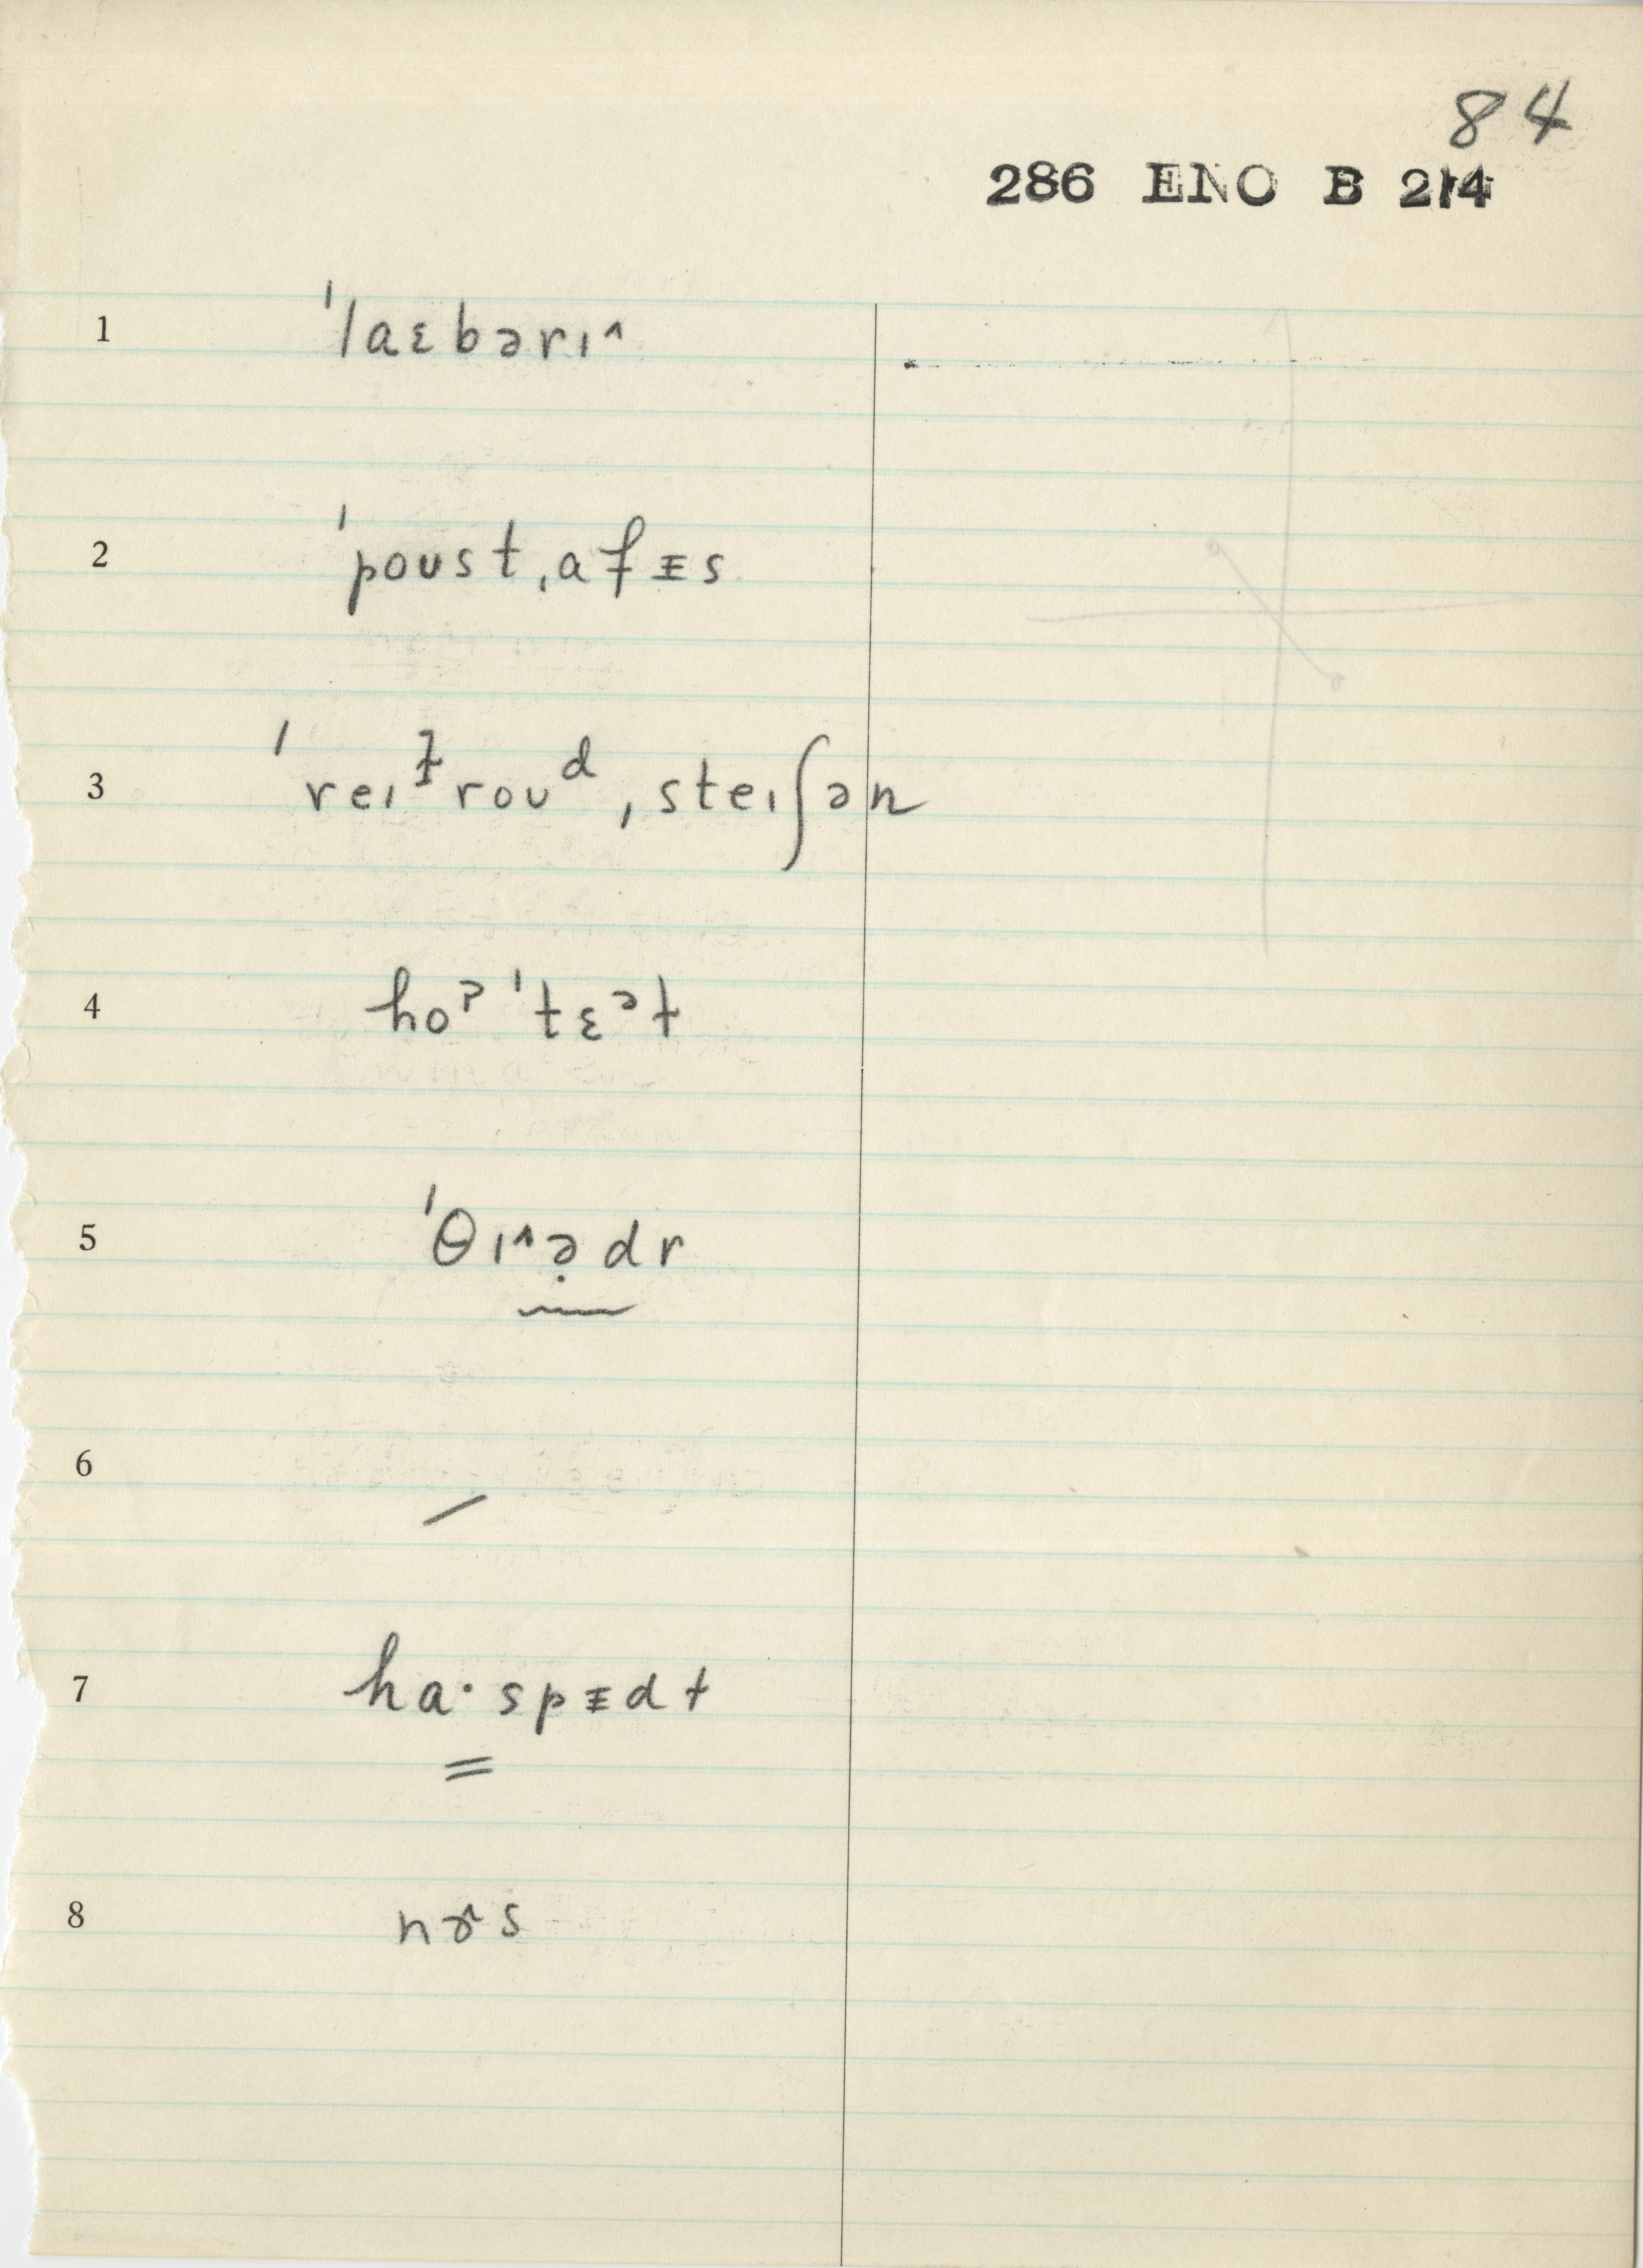 84
286 ENO B 214
1 ˈlaɛbərɪ^
2 ˈpoust,afᵻs
3 ˈreɪɫrouᵈ,steɪʃən
4 hoˀ ˈtɛᵊɫ
5 'θɪ^ə̣dr
6 /
7 ha·spᵻdɫ
8 nɚs